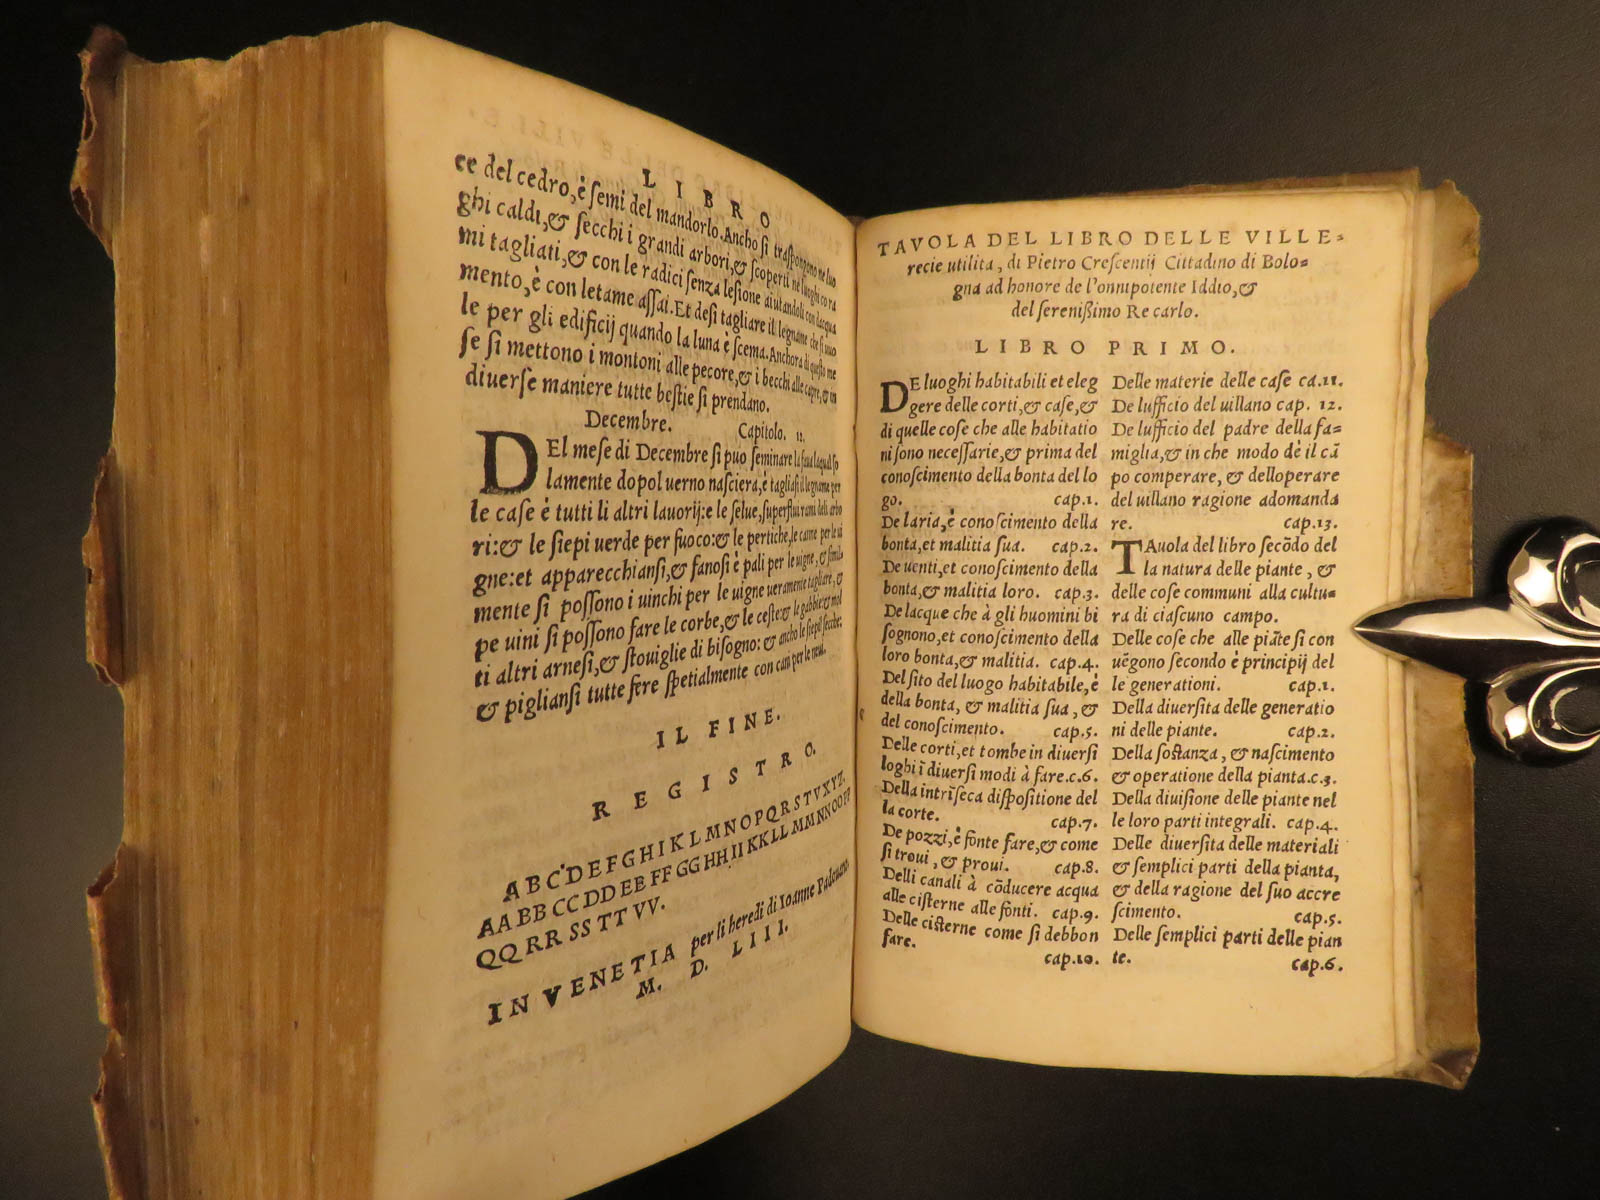 LIBRO
ce del cedro, è semi del mandorlo. Ancho si traspongono ne luo
ghi caldi, & secchi i grandi arbori, & scoperti ne luoghi co ra
mi tagliati, & con le radici senza lesione aiutandoli con dacqua
mento, è con letame assai. Et desi tagliare il legname che si uuo
le per gli edificij quando la luna è scema. Anchora di questo me
se si mettono i montoni alle pecore, & i becchi alle capre, & in
diuerse maniere tutte bestie si prendano.
Decembre. Capitolo. 11.
DEl mese di Decembre si puo seminare la faua laqual so
lamente dopo l uerno nasciera, è tagliasi il legname per
le case è tutti li altri lauorij: e le selue, superflui rami deli arbo
ri: & le siepi uerde per fuoco: & le pertiche, le canne per le ui
gne: et apparecchiansi, & fanosi è pali per le uigne, & simil=
mente si possono i uinchi per le uigne ueramente tagliare, &
pe uini si possono fare le corbe, & le ceste: & le gabbie: & mol
ti altri arnesi, & stouiglie di bisogno: & ancho le siepi secche:
& piglianssi tutte fere spetialmente con cani per le neui.
IL FINE.
REGISTRO.
ABCDEFGHIKLMNOPQRSTVXYZ.
AA BB CC DD EE FF GG HH II KK LL MM NN OO PP
QQ RR SS TT VV.
IN VENETIA per li heredi di Ioanne Padouano.
M. D. LIII.
TAVOLA DEL LIBRO DELLE VILLE=
recie utilita, di Pietro Crescentij Cittadino di Bolo=
gna ad honore de l'onnipotente Iddio, &
del serenissimo Re carlo.
LIBRO PRIMO.
DE luoghi habitabili et eleg
gere delle corti, & case, &
di quelle cose che alle habitatio
ni sono necessarie, & prima del
conoscimento della bonta del lo
go. cap.1.
De laria, è conoscimento della
bonta, et malitia sua. cap.2.
De uenti, et conoscimento della
bonta, & malitia loro. cap.3.
De lacque che à gli huomini bi
sognono, et conoscimento della
loro bonta, & malitia. cap.4.
Del sito del luogo habitabile, è
della bonta, & malitia sua, &
del conoscimento. cap.5.
Delle corti, et tombe in diuersi
loghi ī diuersi modi à fare.c.6.
Della intrīseca dispositione del
la corte. cap.7.
De pozzi, è fonte fare, & come
si troui, & proui. cap.8.
Delli canali à cōducere acqua
alle cisterne alle fonti. cap.9.
Delle cisterne come si debbon
fare. cap.10.
Delle materie delle case ca.11.
De lufficio del uillano cap. 12.
De lufficio del padre della fa=
miglia, & in che modo dè il cā
po comperare, & delloperare
del uillano ragione adomanda
re. cap.13.
TAuola del libro secōdo del
la natura delle piante, &
delle cose communi alla cultu=
ra di ciascuno campo.
Delle cose che alle piāte si con
uēgono secondo è principij del
le generationi. cap.1.
Della diuersita delle generatio
ni delle piante. cap.2.
Della sostanza, & nascimento
& operatione della pianta.c.3.
Della diuisione delle piante nel
le loro parti integrali. cap.4.
Delle diuersita delle materiali
& semplici parti della pianta,
& della ragione del suo accre
scimento. cap.5.
Delle semplici parti delle pian
te. cap.6.